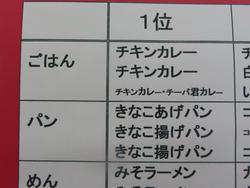 1位
ごはん
チキンカレー
チキンカレー
チキンカレー・チーバ君カレー
パン
きなこあげパン
きなこ揚げパン
きなこ揚げパン
めん
みそラーメン